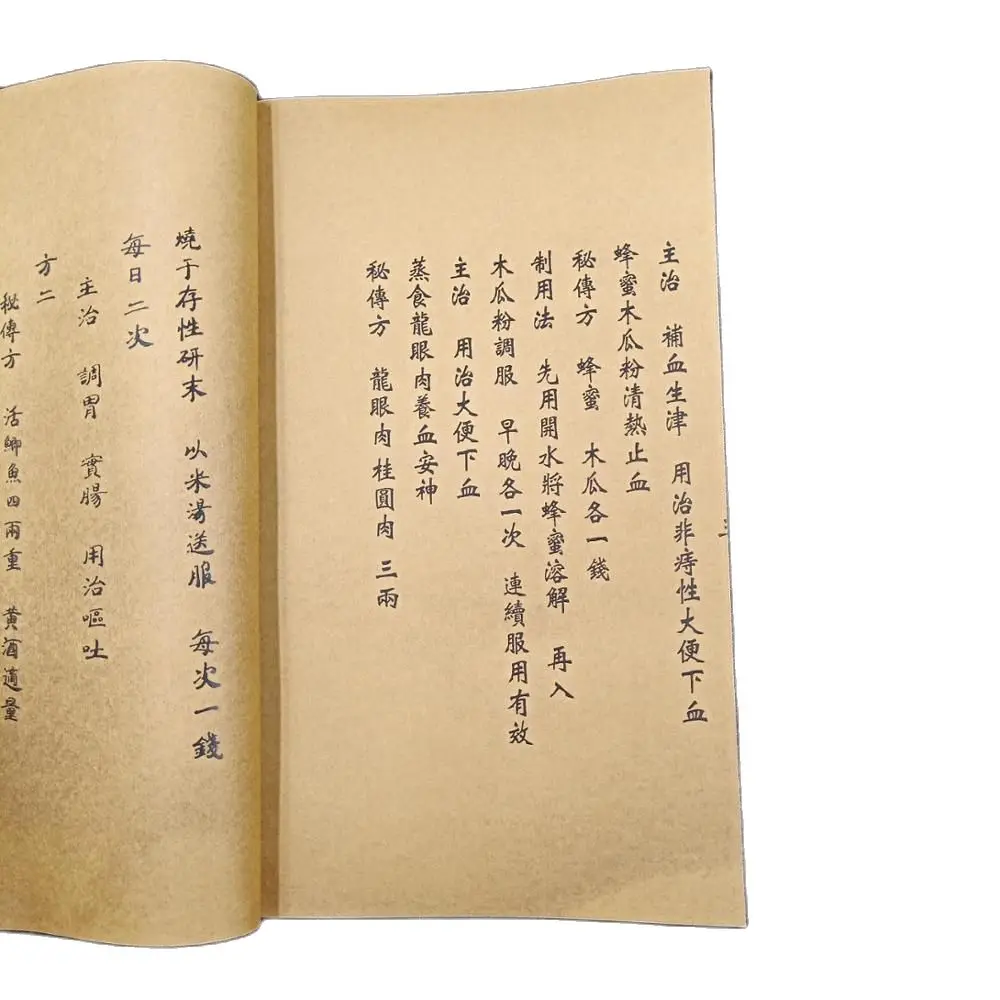 主治 補血生津 用治非痔性大便下血
蜂蜜木瓜粉清熱止血
秘傳方 蜂蜜 木瓜各一錢
制用法 先用開水將蜂蜜溶解 再入
木瓜粉調服 早晚各一次 連續服用有效
主治 用治大便下血
蒸食龍眼肉養血安神
秘傳方 龍眼肉桂圓肉 三兩
燒于存性研末 以米湯送服 每次一錢
每日二次
主治 調胃 實腸 用治嘔吐
方二
秘傳方 活鯽魚四兩重 黃酒適量